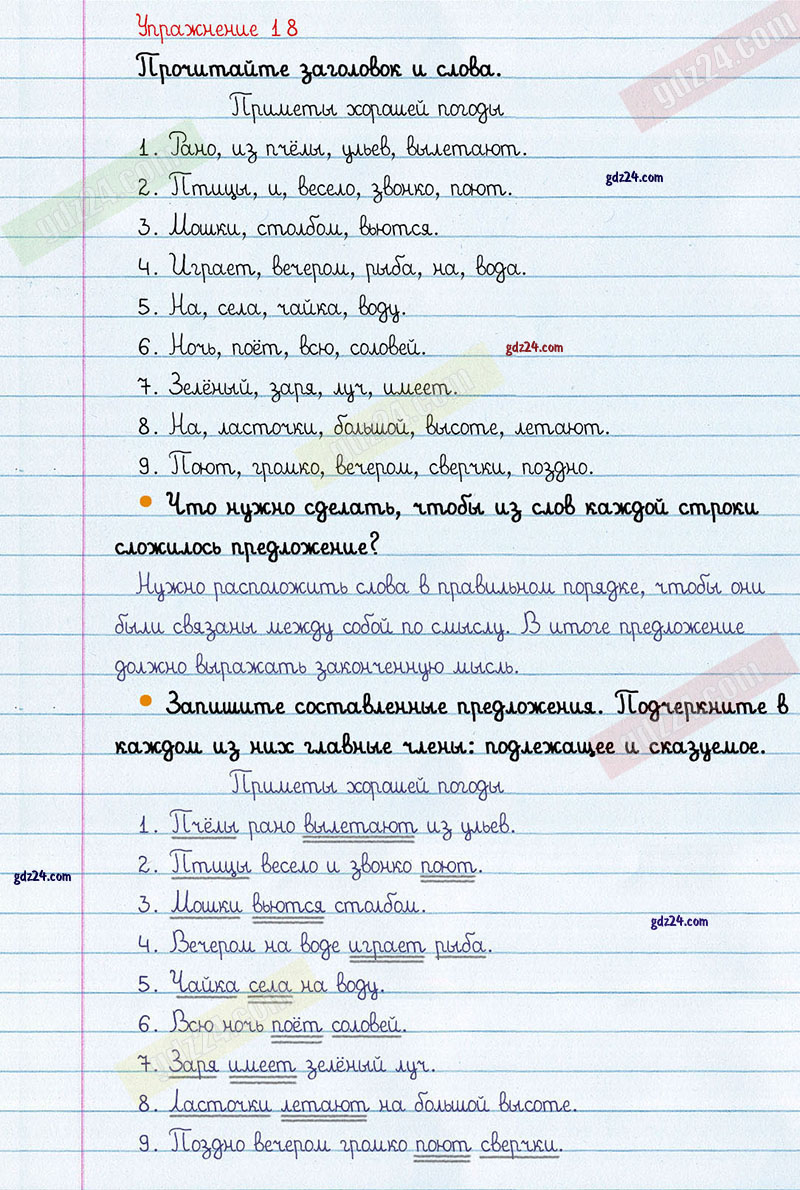 Упражнение 18
Прочитайте заголовок и слова.
Приметы хорошей погоды
gdz24.com
1. Рано, из пчёлы, ульев, вылетают.
2. Птицы, и, весело, звонко, поют.
gdz24.com
gdz24.com
3. Мошки, столбом, вьются.
4. Играет, вечером, рыба, на, вода.
5. На, села, чайка, воду.
6. Ночь, поёт, всю, соловей.
gdz24.com
7. Зелёный, заря, луч, имеет.
gdz24.com
8. На, ласточки, большой, высоте, летают.
9. Поют, громко, вечером, сверчки, поздно.
• Что нужно сделать, чтобы из слов каждой строки
сложилось предложение?
Нужно расположить слова в правильном порядке, чтобы они
были связаны между собой по смыслу. В итоге предложение
должно выражать законченную мысль.
• Запишите составленные предложения. Подчеркните в
каждом из них главные члены: подлежащее и сказуемое.
gdz24.com
Приметы хорошей погоды
1. Пчёлы рано вылетают из ульев.
2. Птицы весело и звонко поют.
gdz24.com
3. Мошки вьются столбом.
gdz24.com
4. Вечером на воде играет рыба.
5. Чайка села на воду.
6. Всю ночь поёт соловей.
gdz24.com
7. Заря имеет зелёный луч.
8. Ласточки летают на большой высоте.
9. Поздно вечером громко поют сверчки.